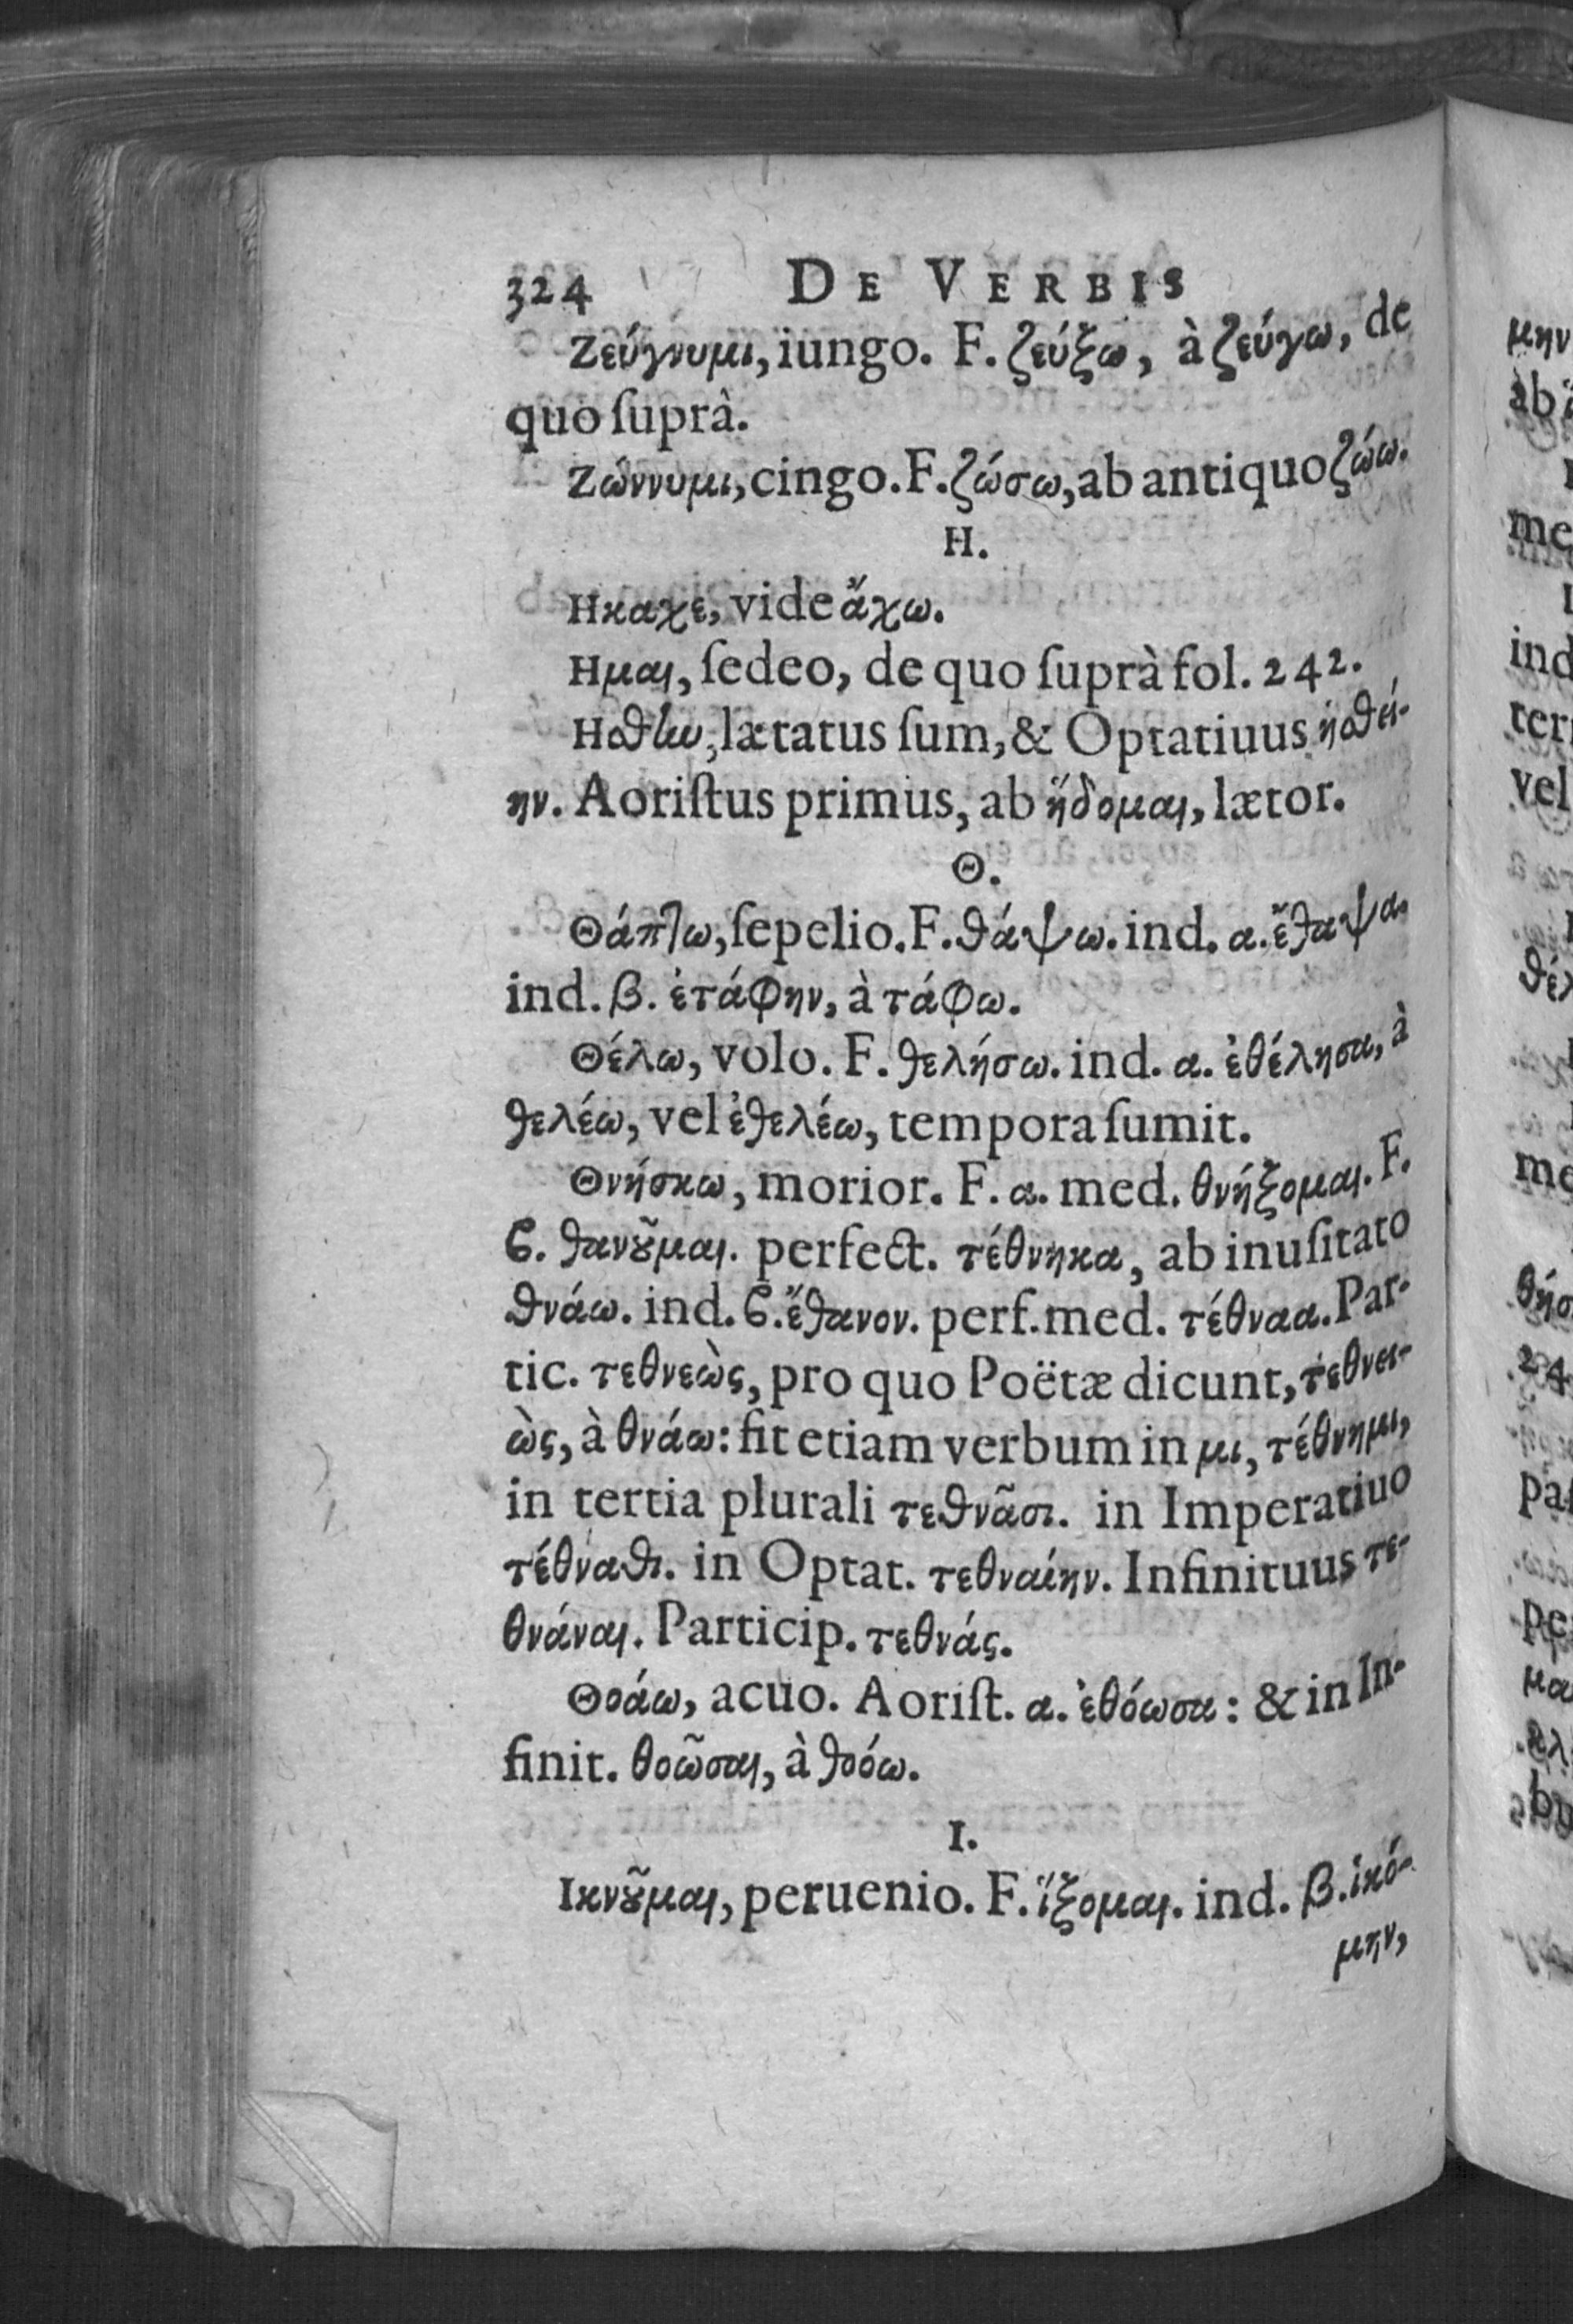 324 DE VERBIS
Ζεύγνυμι, iungo. F. ζεύξω, à ζεύγω, de
quo ſuprà.
Ζώννυμι, cingo. F. ζώσω, ab antiquo ζώω.
Η.
Ηκαχε, vide ἄχω.
Ημαι, ſedeo, de quo ſuprà fol. 242.
Ησθην, lætatus ſum, & Optatiuus ἡσθεί-
ην. Aoriſtus primus, ab ἥδομαι, lætor.
Θ.
Θάπτω, ſepelio. F. θάψω. ind. α. ἔθαψα.
ind. β. ἐτάφην, à τάφω.
Θέλω, volo. F. θελήσω. ind. α. ἐθέλησα, à
θελέω, vel ἐθελέω, tempora ſumit.
Θνήσκω, morior. F. α. med. θνήξομαι. F.
ϐ. θανοῦμαι. perfect. τέθνηκα, ab inuſitato
θνάω. ind. ϐ. ἔθανον. perf. med. τέθναα. Par-
tic. τεθνεὼς, pro quo Poëtæ dicunt, τεθνει-
ὼς, à θνάω: fit etiam verbum in μι, τέθνημι,
in tertia plurali τεθνᾶσι. in Imperatiuo
τέθναθι. in Optat. τεθναίην. Infinituus τε-
θνάναι. Particip. τεθνάς.
Θοάω, acuo. Aoriſt. α. ἐθόωσα: & in In-
finit. θοῶσαι, à θοόω.
Ι.
Ικνοῦμαι, peruenio. F. ἵξομαι. ind. β. ἱκό-
μην,
μην
ab
me
ind
ter
vel
θέλ
me
θήσ
24